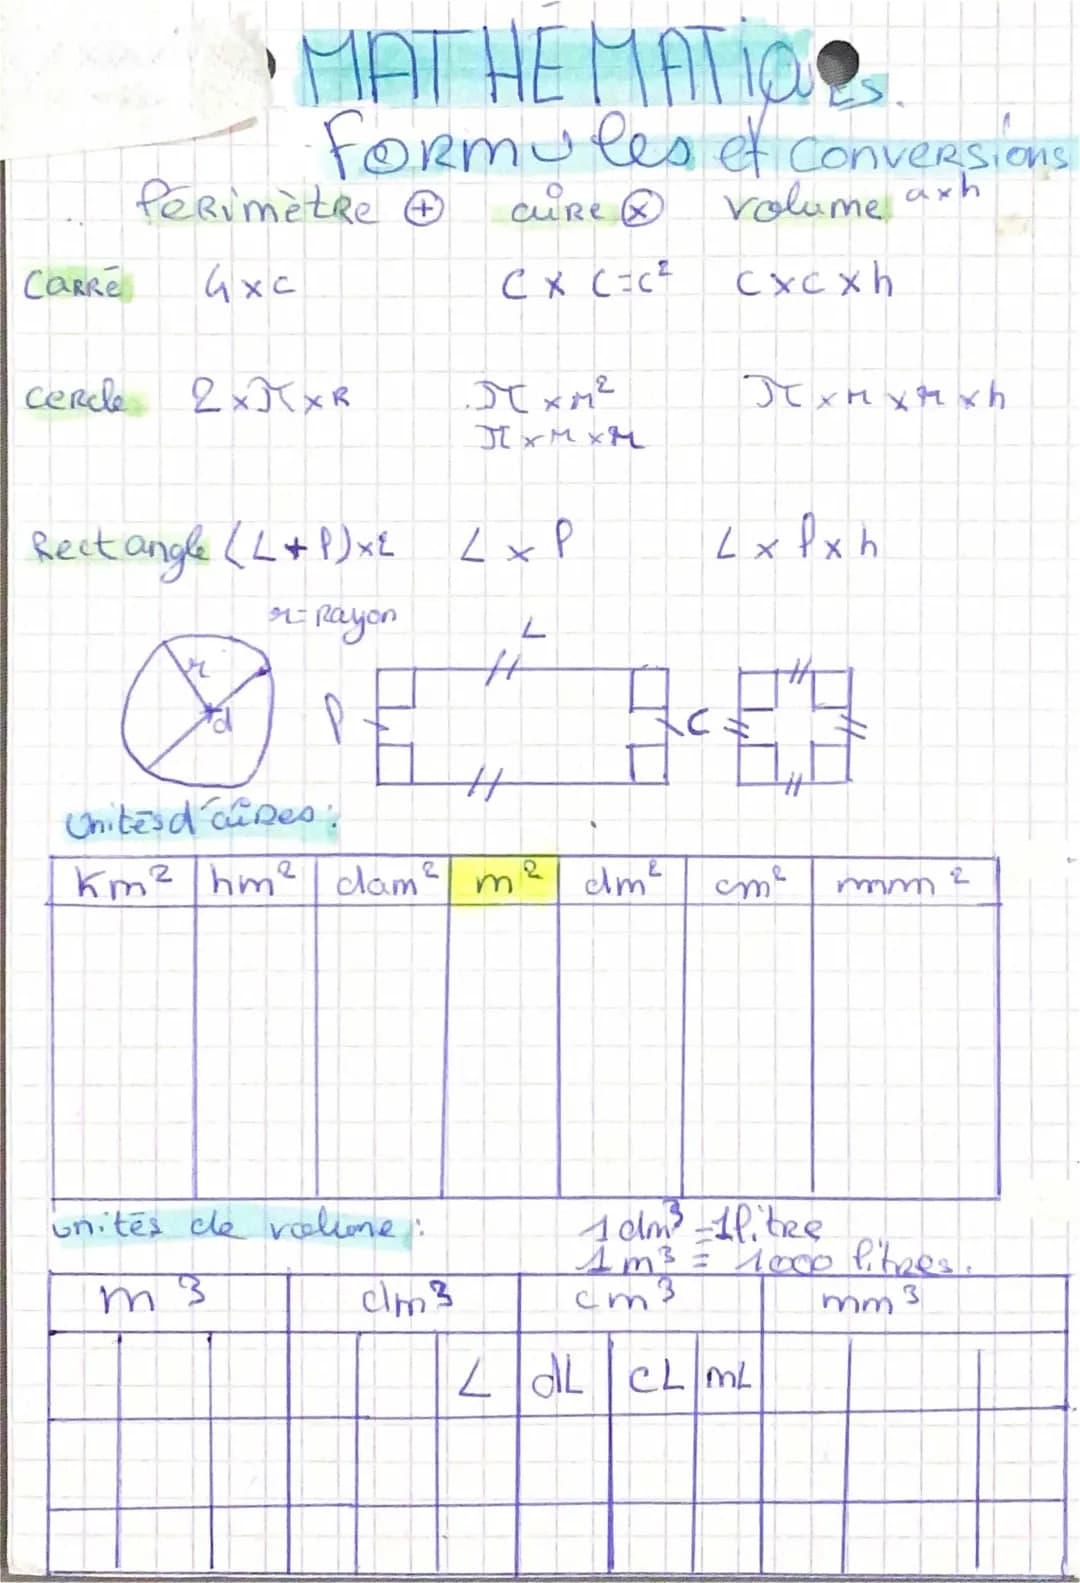 MATHÉMATIQUES.
Formules et conversions
Périmètre + aire × volume a×h
Carré 4×c c×c=c² c×c×h
cercle 2×π×R π×r² π×r×r×h
π×r×r
Rectangle (L+l)×2 L×l L×l×h
r=Rayon L
r
d l c
Unités d'aires :
Km² hm² dam² m² dm² cm² mm²
unités de volume : 1 dm³ = 1 litre
1 m³ = 1000 litres.
m³ dm³ cm³ mm³
L dL cL mL